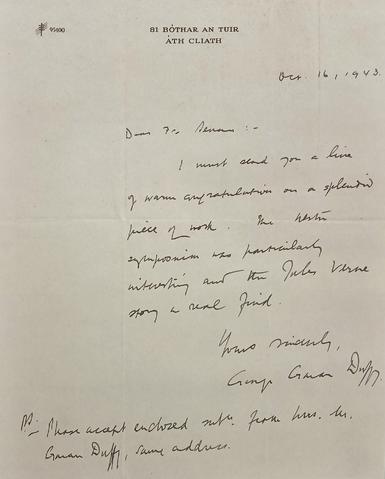 95690
81 BÓTHAR AN TUIR
ÁTH CLIATH
Oct. 16, 1943.
Dear Fr. Senan :-
I must send you a line
of warm congratulation on a splendid
piece of work. The
symposium was particularly
interesting and the Jules Verne
story a real find.
Yours sincerely,
George Gavan Duffy.
PS:- Please accept enclosed subn. from Mrs.
Gavan Duffy, same address.